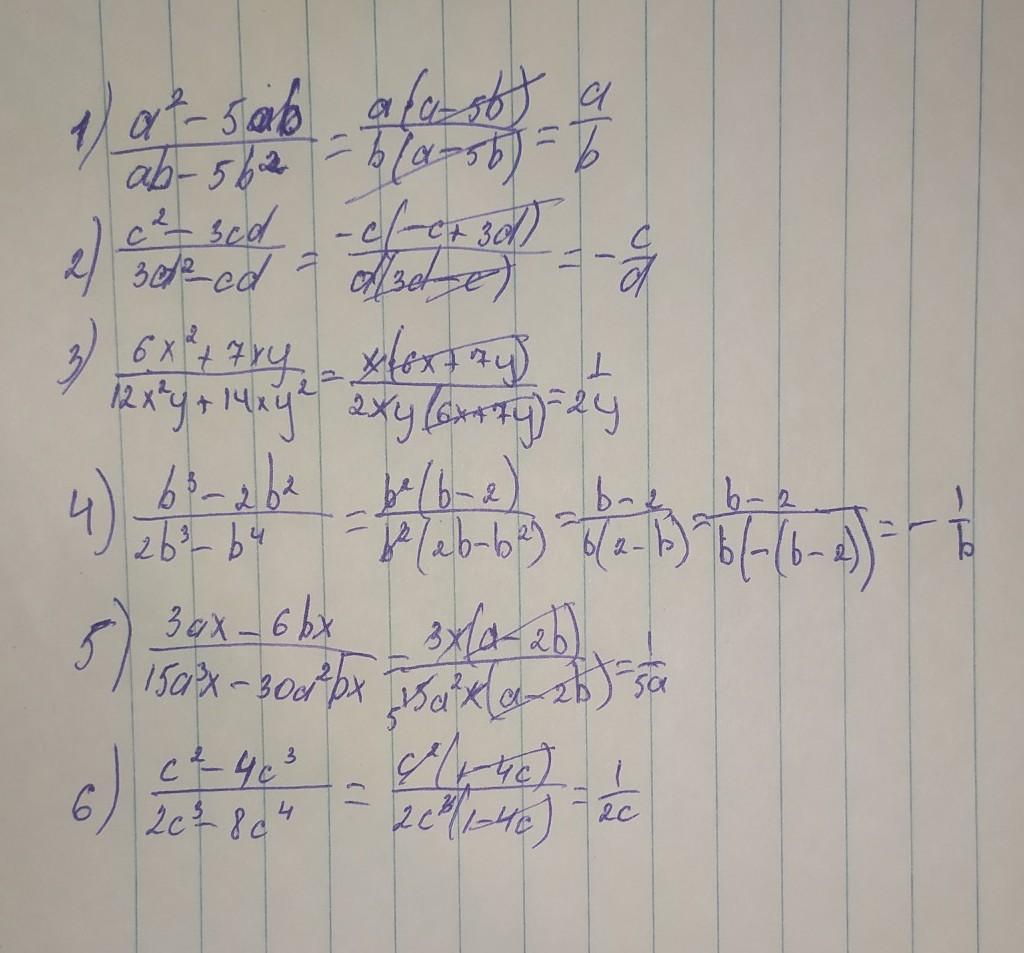 1) (a² - 5ab)/(ab - 5b²) = a(a - 5b)/b(a - 5b) = a/b
2) (c² - 3cd)/(3d² - cd) = -c(-c + 3d)/d(3d - c) = - c/d
3) (6x² + 7xy)/(12x²y + 14xy²) = x(6x + 7y)/2xy(6x + 7y) = 1/2y
4) (b³ - 2b²)/(2b³ - b⁴) = b²(b - 2)/b²(2b - b²) = (b - 2)/b(2 - b) = (b - 2)/b(-(b - 2)) = - 1/b
5) (3ax - 6bx)/(15a³x - 30a²bx) = 3x(a - 2b)/5 15a²x(a - 2b) = 1/5a
6) (c² - 4c³)/(2c³ - 8c⁴) = c²(1 - 4c)/2c³(1 - 4c) = 1/2c